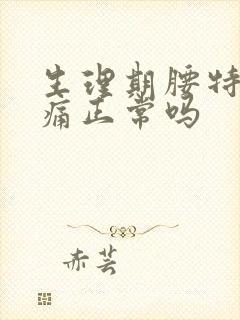 生理期腰特
痛正常吗
赤芸